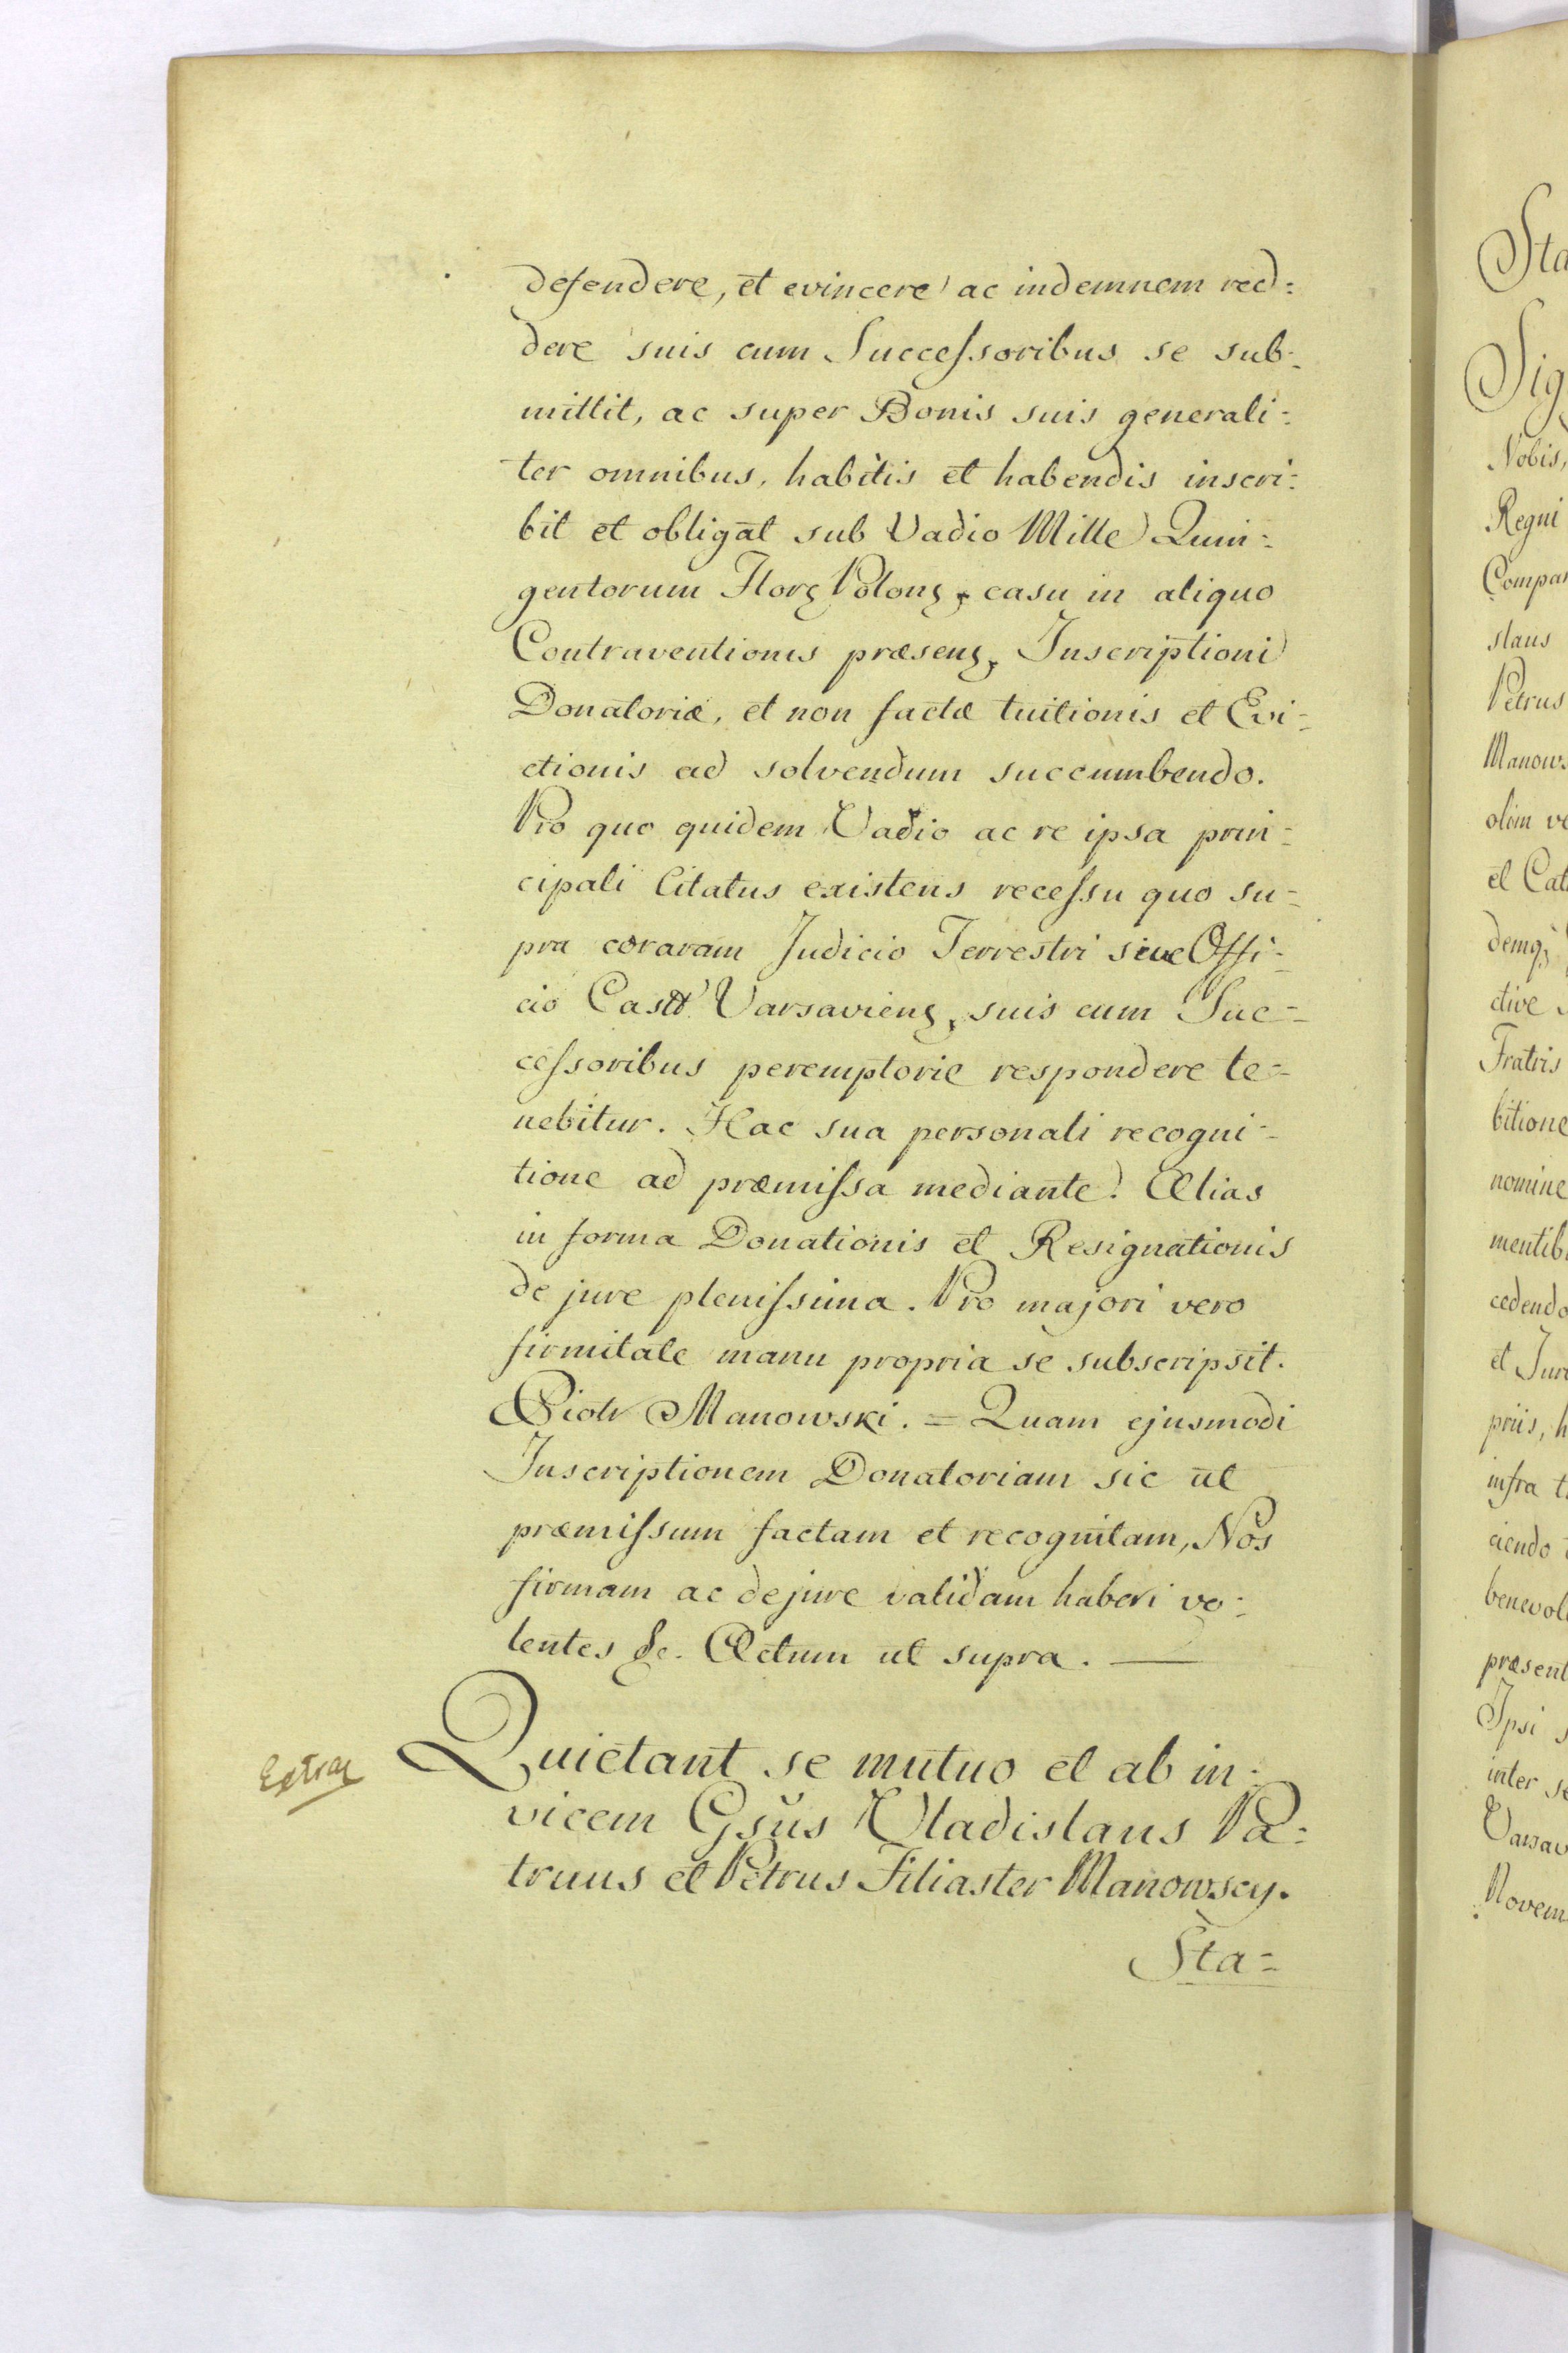 defendere, et evincere ac indemnem red:
dere suis cum Successoribus se sub:
mittit, ac super Bonis suis generali:
ter omnibus, habitis et habendis inscri:
bit et obligat sub Vadio Mille Quin:
gentorum Flor Polon casu in aliquo
Contraventionis præsen, Inscriptioni
Donatoriæ, et non factæ tuitionis et Evi:
ctionis ad solvendum succumbendo.
Pro quo quidem Vadio ac re ipsa prin:
cipali Citatus existens recessu quo su:
pra coraram Judicio Terrestri sive Offi:
cio Castr Varsavien, suis cum Suc:
cessoribus peremptorie respondere te:
nebitur. Hac sua personali recogni:
tione ad præmissa mediante. Alias
in forma Donationis et Resignationis
de jure plenissima. Pro majori vero
firmitate manu propria se subscripsit.
Piotr Manowski. = Quam ejusmodi
Inscriptionem Donatoriam sic ut
præmissum factam et recognitam, Nos
firmam ac de jure validam haberi vo:
lentes &c. Actum ut supra. —
Quietant se mutuo et ab in:
vicem Gsus Vladislaus Pa:
truus et Petrus Filiaster Manowscy.
Sta=
Extra
Sta
Sig
Nobis,
Regni
Compar
slaus
Petrus
Manows
olim ve
et Cat
demq;
ctive
Fratris
bitione
nomine
mentib
cedendo
et Jure
priis, h
infra t
ciendo
benevol
præsent
Ipsi s
inter se
Varsav
Novem